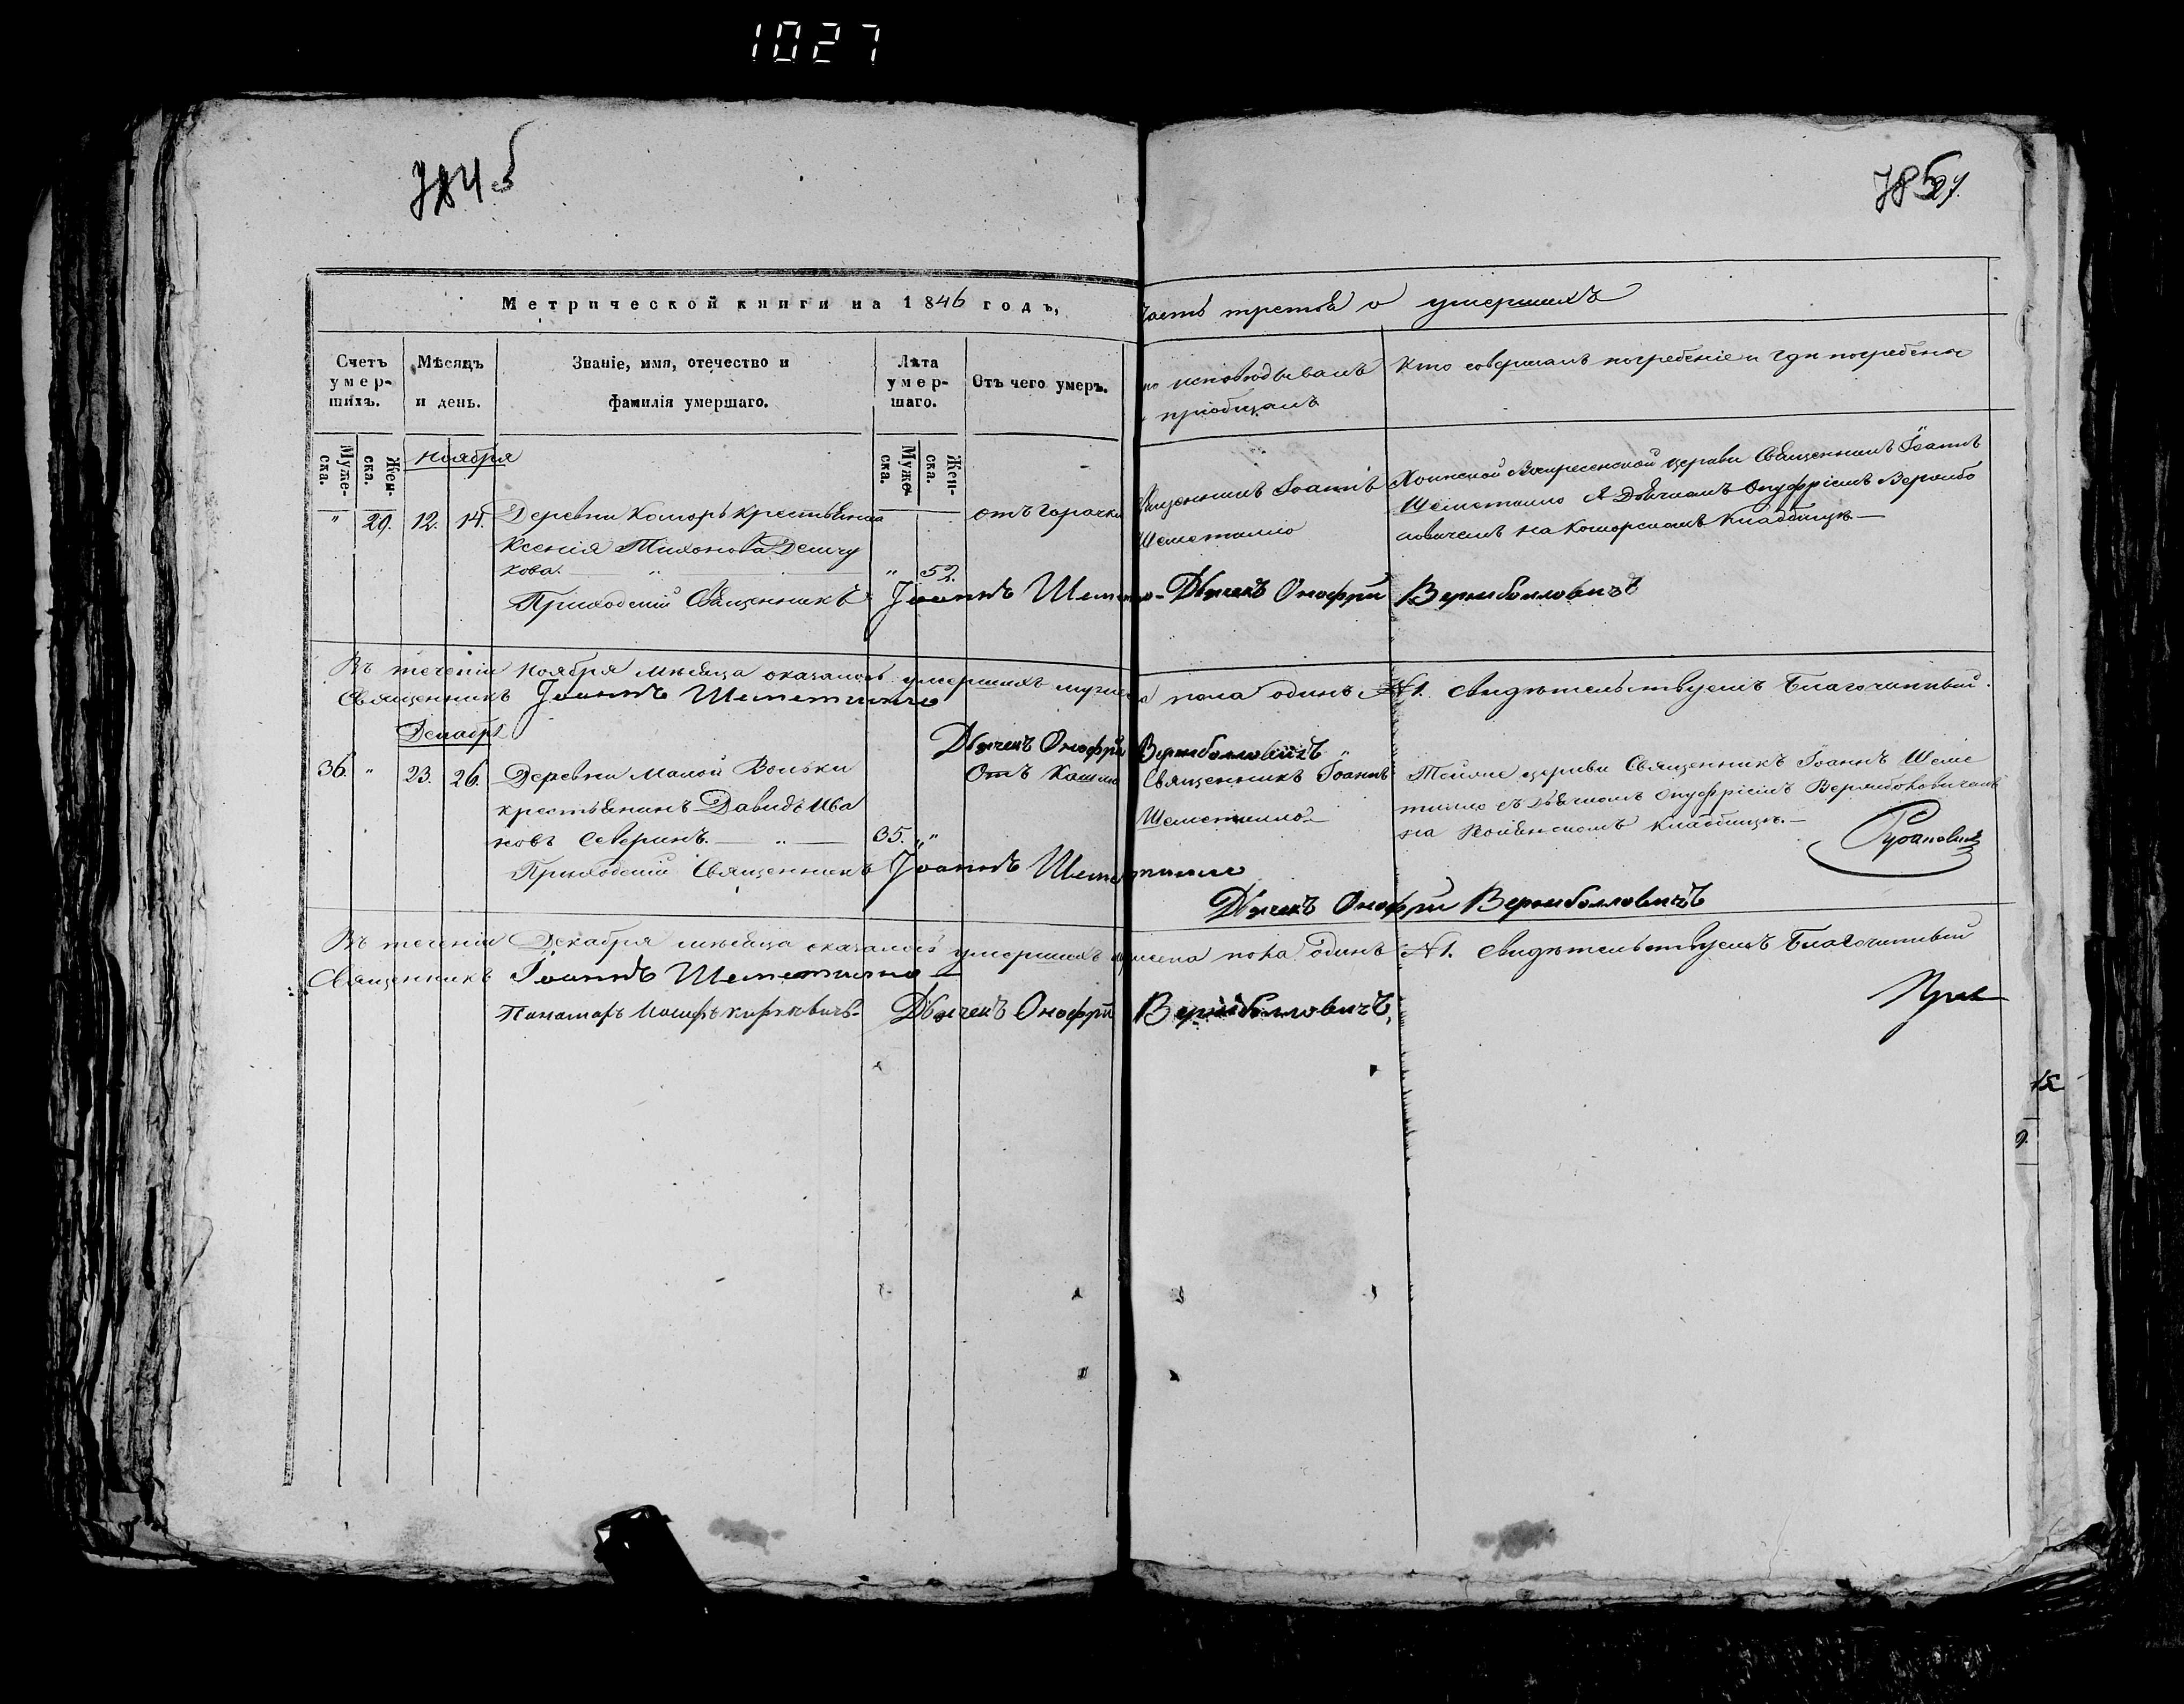 1027
784 об
785
Метрической книги на 1846 годъ,
часть третья о умершихъ
Счетъ умер-шихъ.
Мѣсяцъ и день.
Званіе, имя, отечество и фамилія умершаго.
Лѣта умер-шаго.
Отъ чего умеръ.
исповѣдывалъ
пріобщалъ
Кто совершалъ погребеніе и гдѣ погребены
Муже-ска.
Жен-ска.
Ноября
Муже-ска.
Жен-ска.
" 29. 12. 14. Деревни Коморъ крестьянка
Ксенія Тихонова Демчу
кова. " " 52.
отъ горячки
Священникъ Іоаннъ
Шеметилло
Хоинской Воскресенской церкви Священникъ Іоаннъ
Шеметилло съ Дьячкомъ Онуфріемъ Вербо
ловичемъ на Коморскомъ кладбищѣ.—
Приходскій Священникъ Іоаннъ Шеметилло - Дьячекъ Онофрій
Въ теченіи Ноября мѣсяца оказалось умершихъ пола одинъ №1. Свидѣтельствуемъ Благочинный.
Священникъ Іоаннъ Шеметилло
Дьячекъ Онофрій
Декабря
36. " 23. 26. Деревни Малой Вольки
крестьянинъ Давидъ Ива
новъ Северинъ. " 35. "
Отъ Кашлю
Священникъ Іоаннъ
Шеметилло
Тойже церкви Священникъ Іоаннъ Шеме
тилло съ Дьячкомъ Онуфріемъ
на кладбищѣ.—
Приходскій Священникъ Іоаннъ Шеметилло
Дьячекъ Онофрій
Въ теченіи Декабря мѣсяца оказалось умершихъ пола одинъ №1. Свидѣтельствуемъ Благочинный
Священникъ Іоаннъ Шеметилло
Панамарь Іосифъ Дьячекъ Онофрій
15
9.